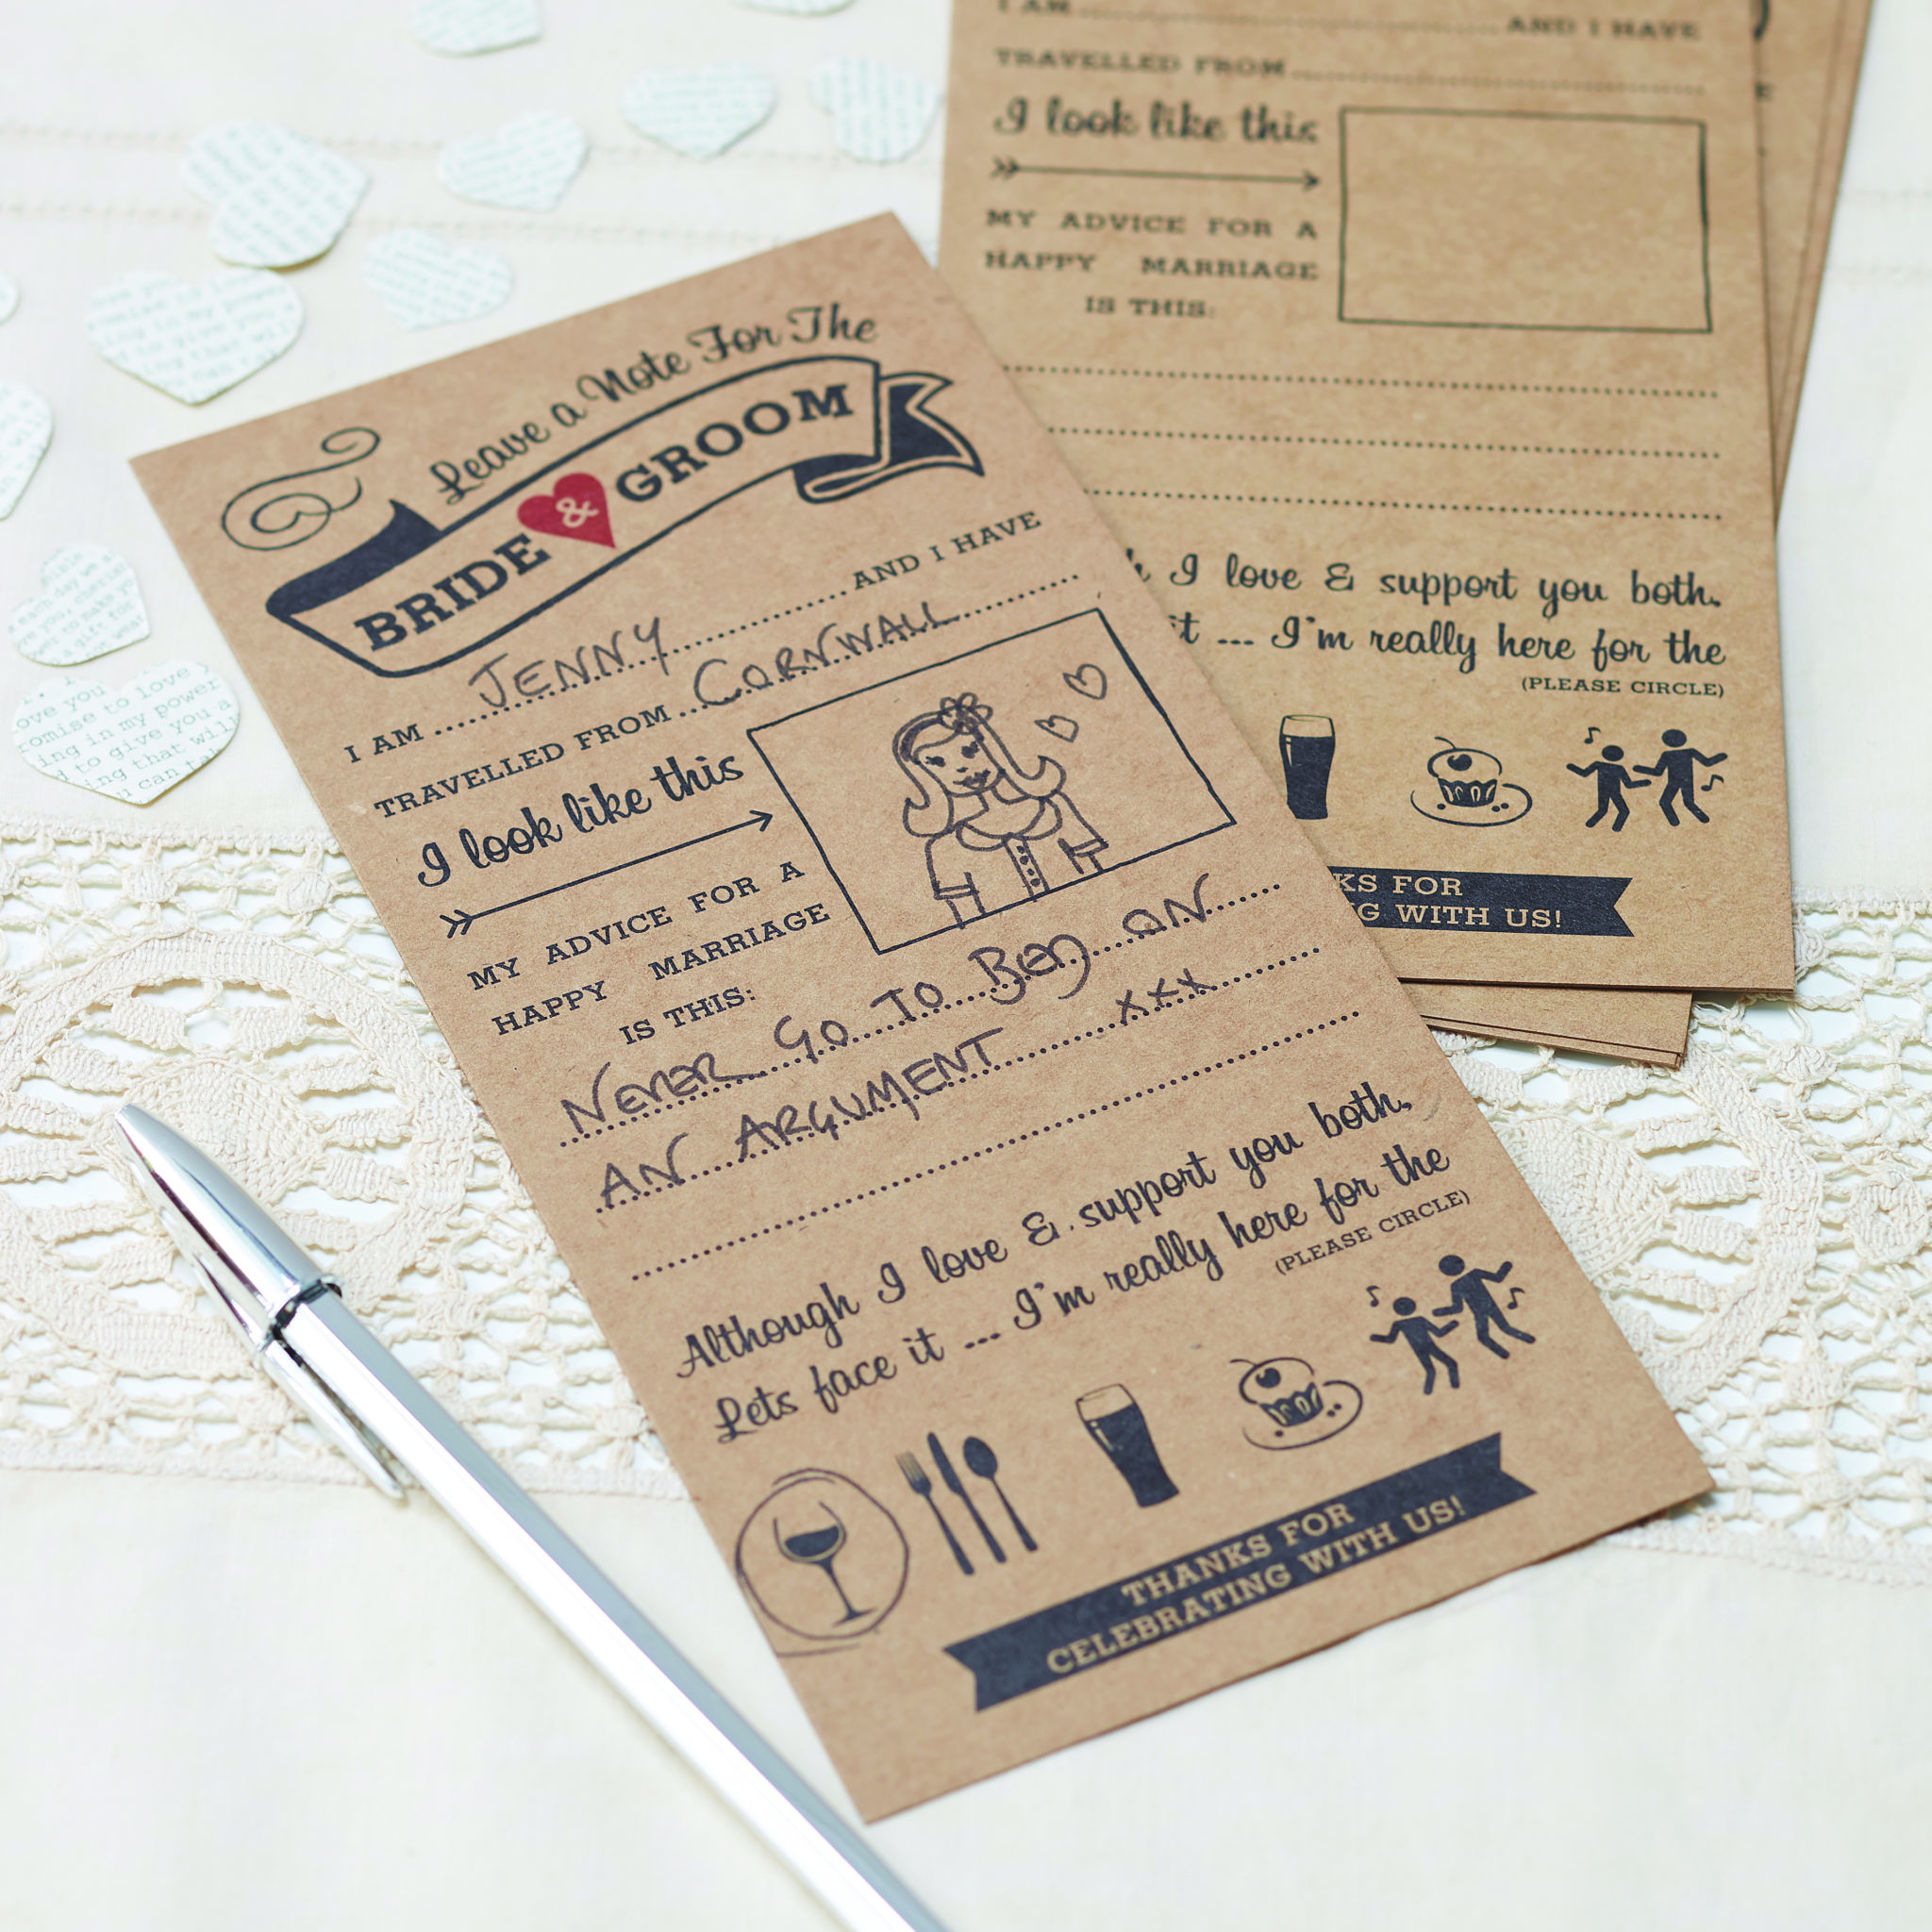 Leave a Note For The
BRIDE & GROOM
I AM JENNY AND I HAVE
TRAVELLED FROM CORNWALL
I look like this
MY ADVICE FOR A
HAPPY MARRIAGE
IS THIS:
NEVER GO TO BED ON
AN ARGUMENT xxx
Although I love & support you both.
Lets face it ... I'm really here for the
(PLEASE CIRCLE)
THANKS FOR
CELEBRATING WITH US!
I AM AND I HAVE
TRAVELLED FROM
I look like this
MY ADVICE FOR A
HAPPY MARRIAGE
IS THIS:
I love & support you both.
it ... I'm really here for the
(PLEASE CIRCLE)
KS FOR
G WITH US!
ove you
omise to love
ing in my power
d to give you a
ing that will
u can ta